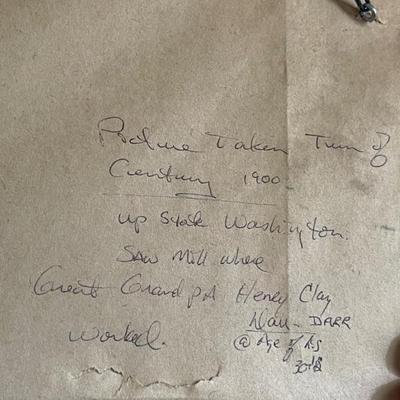 Picture Taken Turn of
Century 1900
up State Washington.
Saw Mill where
Great Grand pA Henry Clay
DARR
Worked.
@ Age of